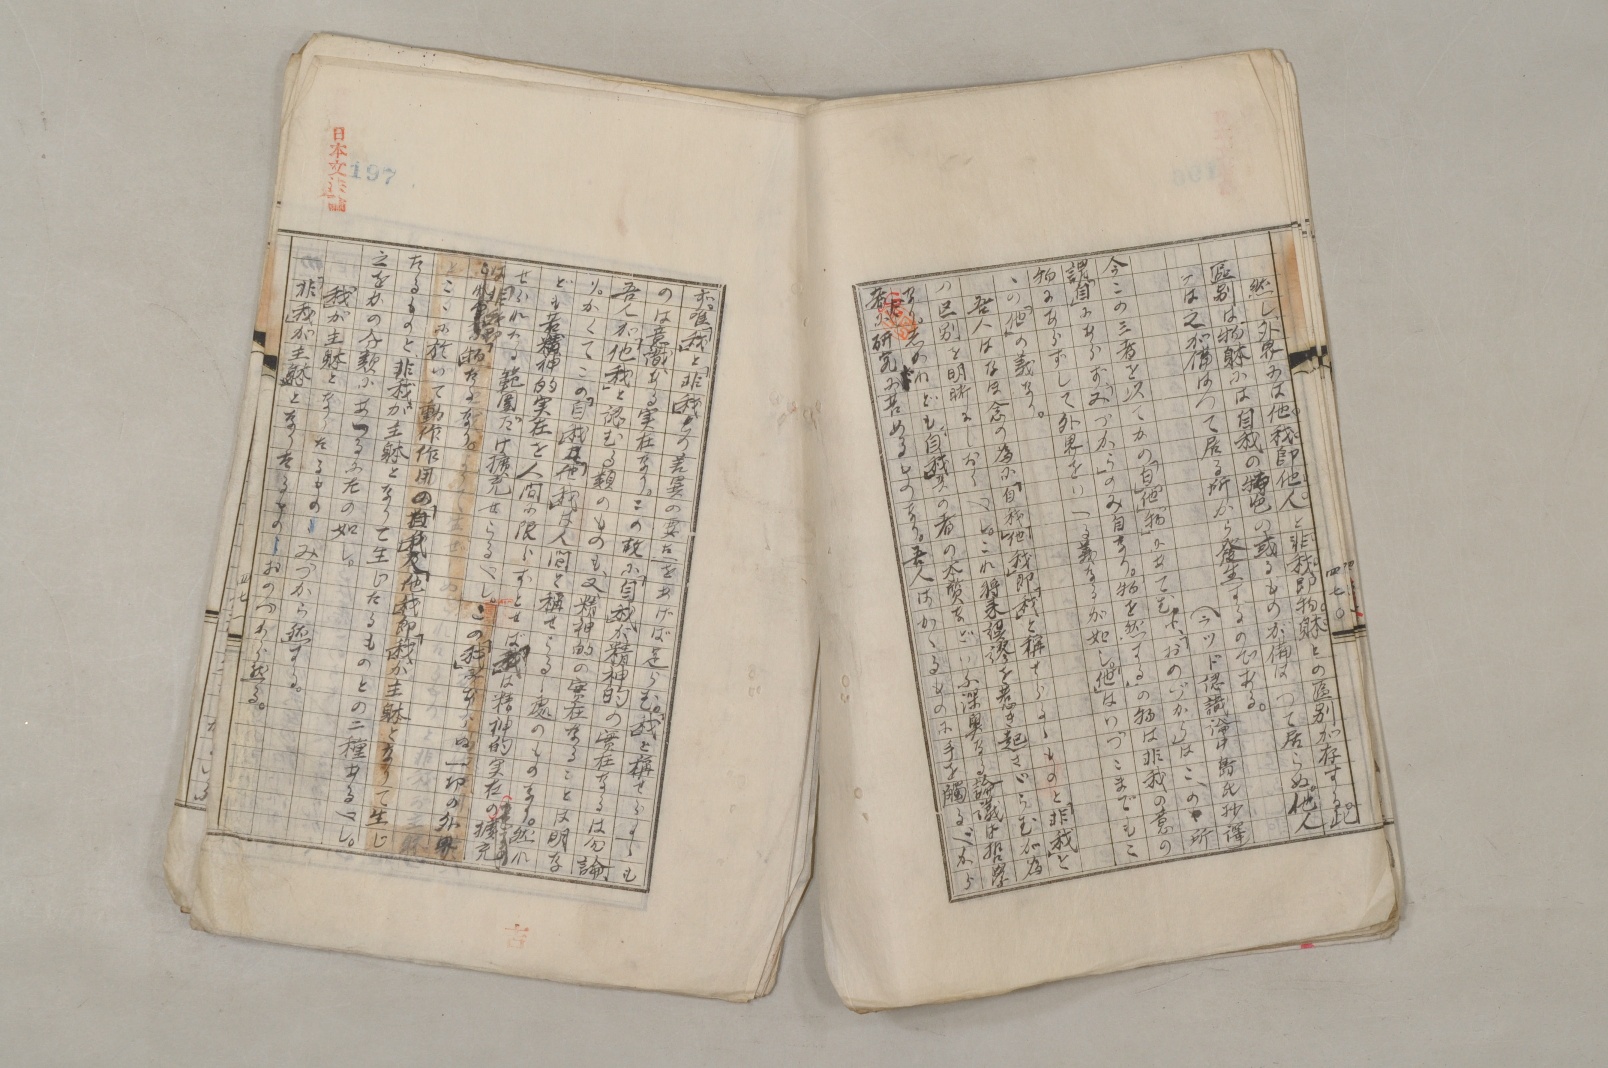 然し外界には他我即他人と非我即物躰との區別が存する此
區別は物躰には自我の特色の或るものが備はつて居らぬ他人
には之が備はつて居る所から發生するのである。
(ラツド認識論中島氏抄譯
今この三者を以てかの「自」「他」「物」にあてむに、おのづからはこゝの所
謂自にあらず、みづからのみ自なり。物を然するの物は非我の意の
物にあらずして外界をいへる義なるが如し。他はいづこまでもこ
この「他」の義なり。
吾人はなほ念の為に自我他我即我と稱せらるゝものと非我と
の区別を明晰にしおくべし。これ将来誤謬を惹き起さゞらむが為
なり。しかれども、自我の者の本質などいふ深奥なる論議は哲学
者の研究に苦めるものなり。吾人はかゝるものに手を觸るべから
ず。唯我と非我の差異の要点をあげば足らむ。我と稱せらるゝも
のは意識ある実在なり。この故に自我が精神的の實在なるは勿論
吾人が他我と認むる類のものも又精神的の實在なることは明な
り。かくてこの自我、他我は人間と稱せらるゝ處のものなり。然れ
ども若精神的実在を人間に限らずとせば我は精神的実在の擴充
せられたる範圍だけ擴充せらるべし。この我にあらぬ一切の外界
は非我即物なるなり。
とこゝに於いて動作作用の自我又他我即我が主躰となりて生じ
たるものと非我が主躰となりて生じたるものとの二種あるべし。
之をかの分類にあつるに左の如し。
我が主躰となりたるもの、みづから然する。
非我が主躰となりたるもの、おのづから然る。
日本文法論
197
四七〇
吉